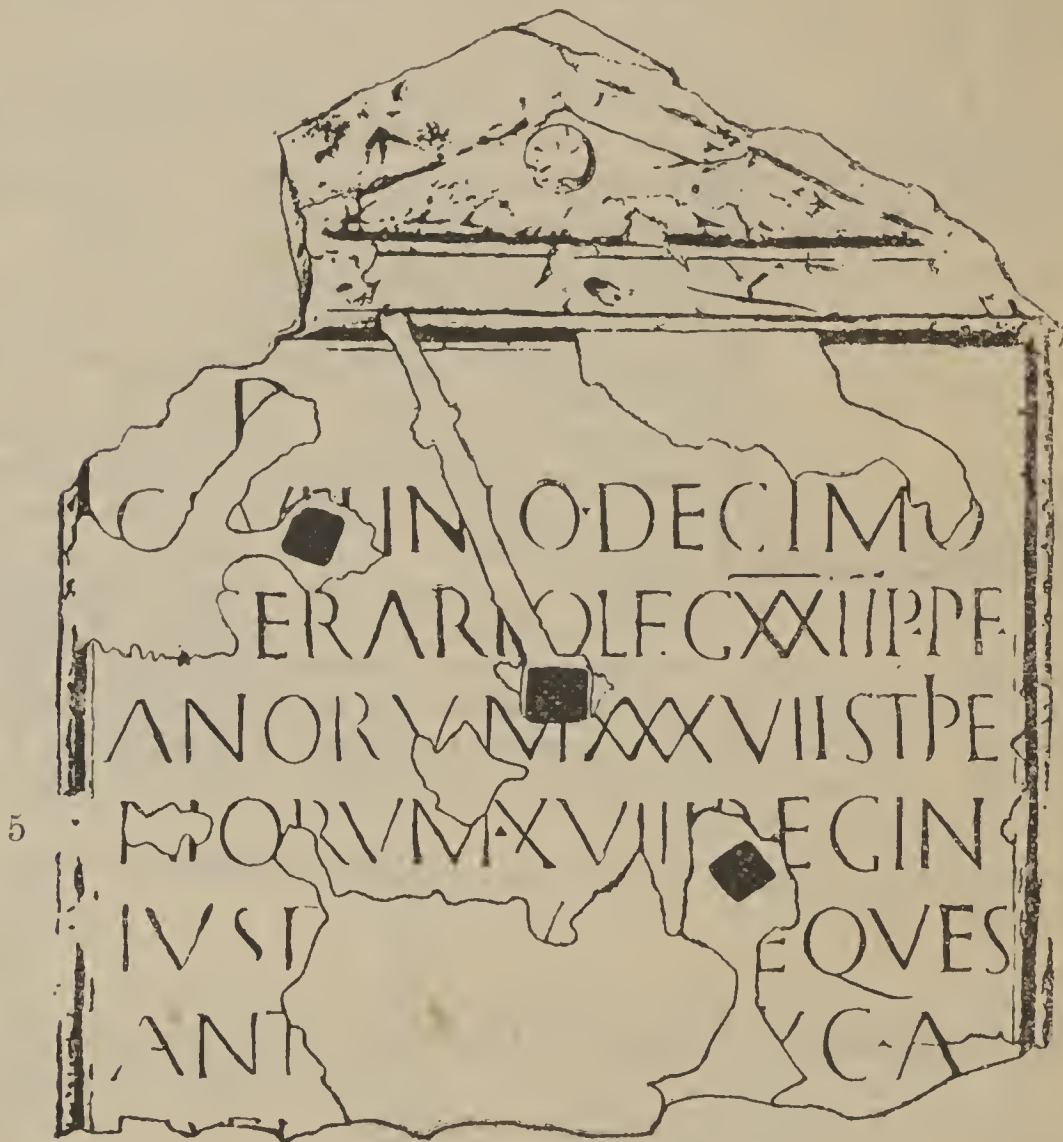 D
C INIO·DECIMO
SERARIO LEG XXII P·PF
ANORVM XXXVII STPE
5 ORVM·XVIII REGIN
IVST EQVES
ANT C·A